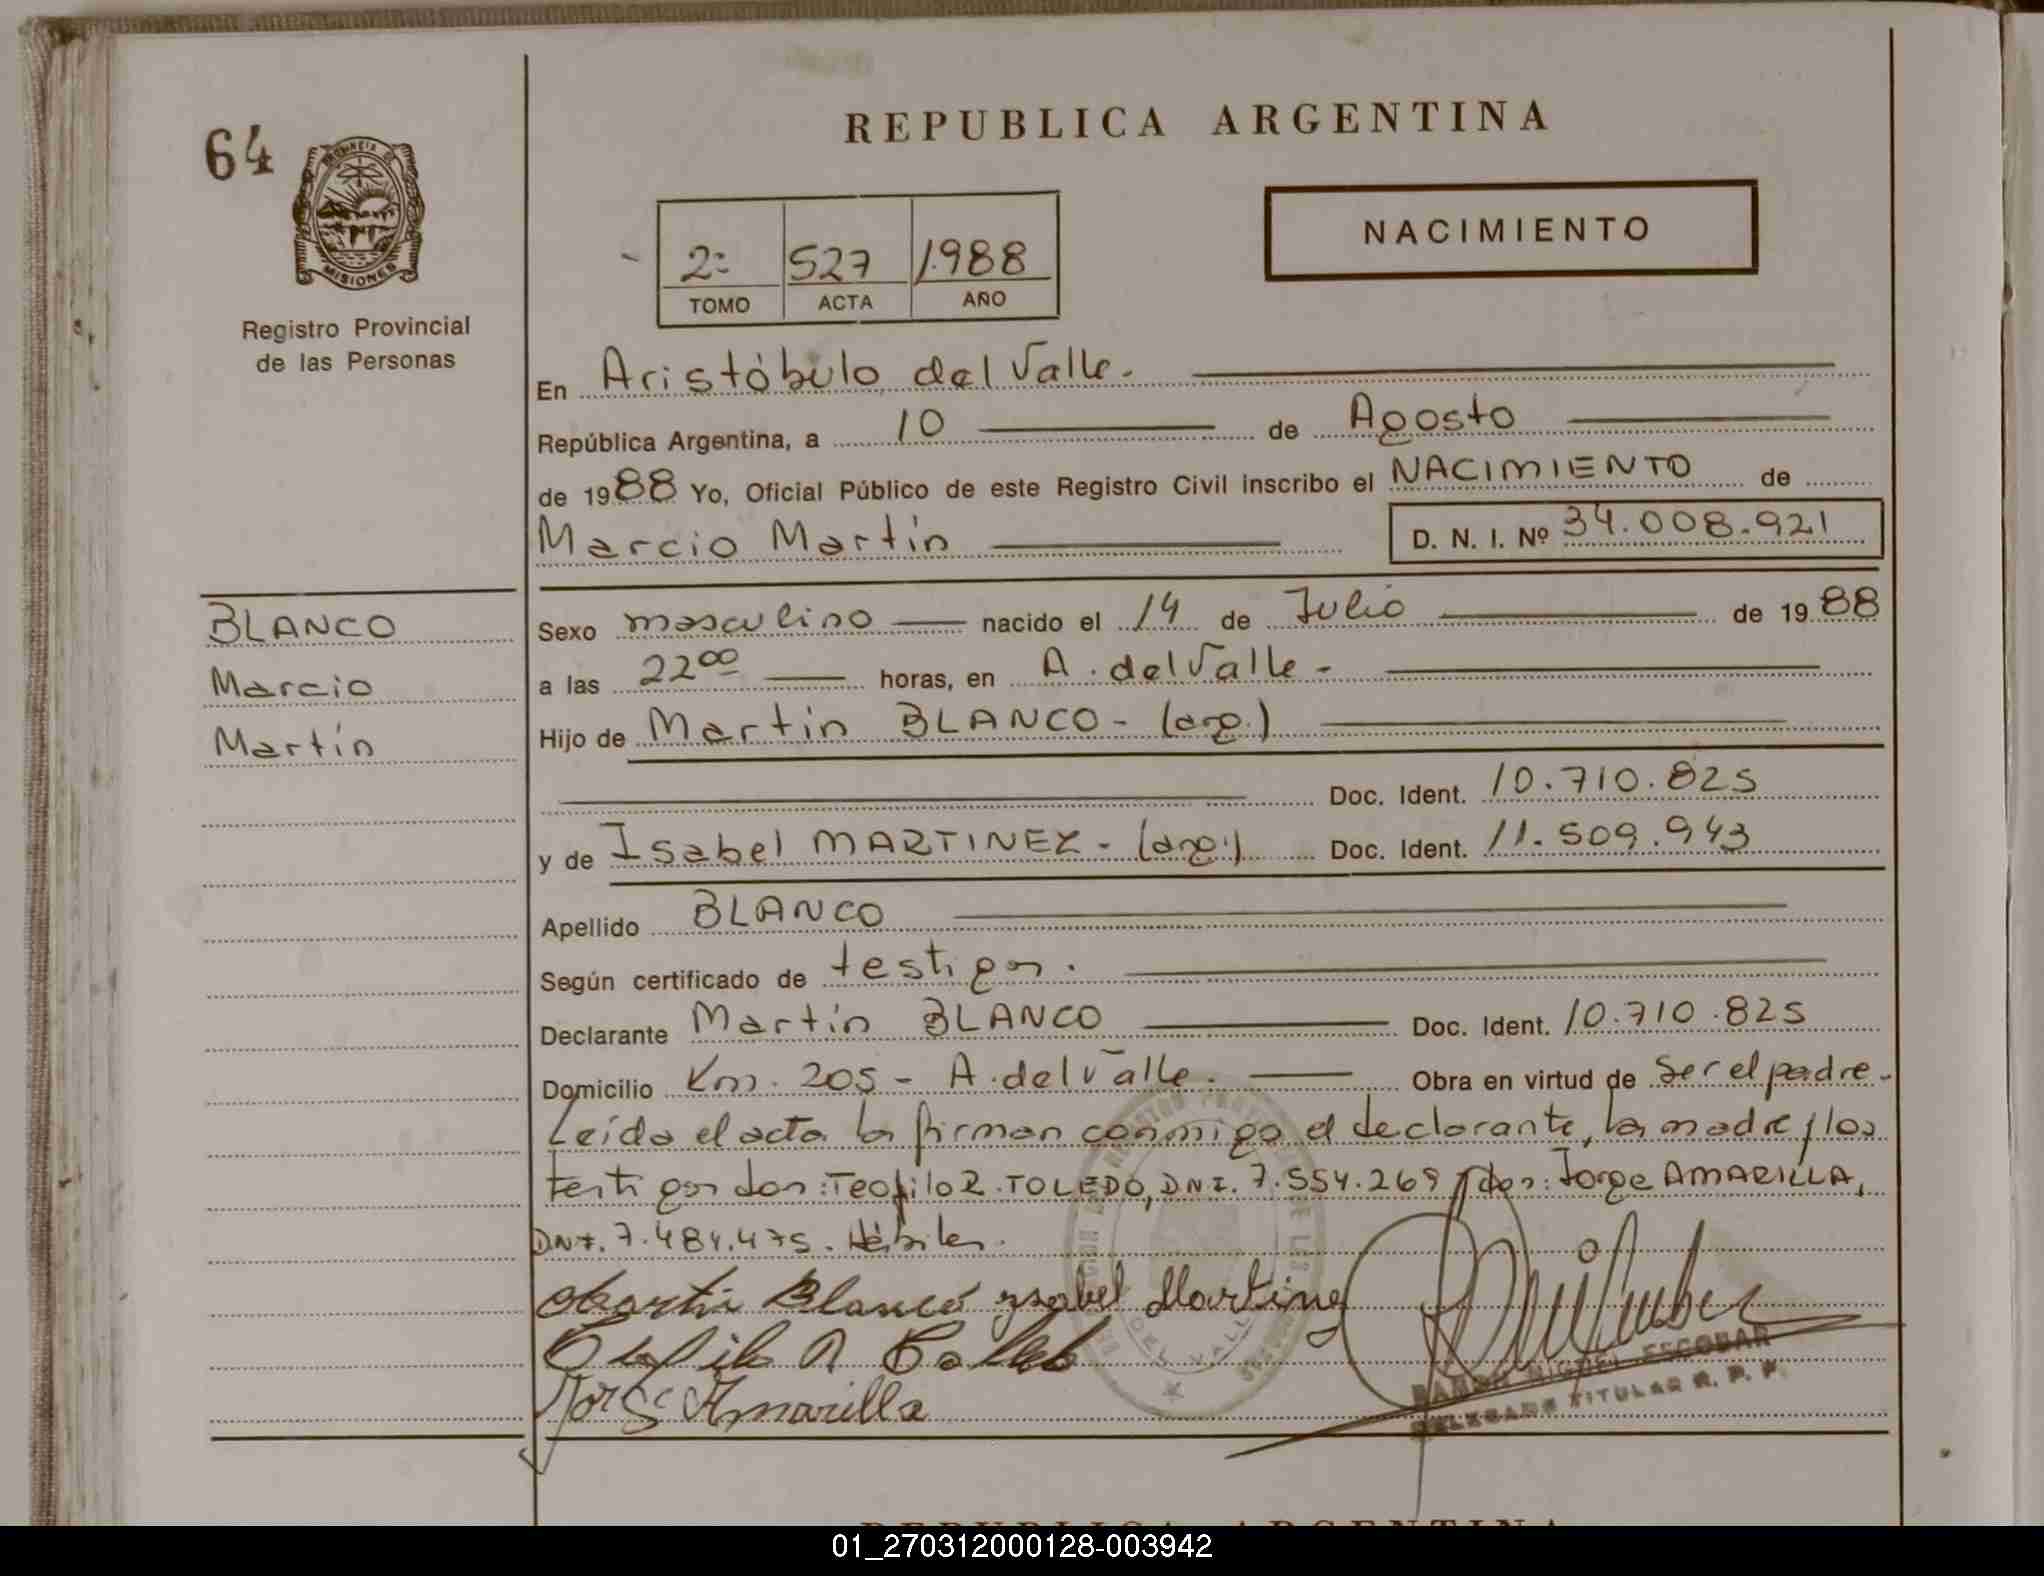 REPUBLICA ARGENTINA
64
PROVINCIA DE
MISIONES
NACIMIENTO
2º 527 1988
TOMO ACTA AÑO
Registro Provincial
de las Personas
En Aristóbulo del Valle.
República Argentina, a 10 de Agosto
de 1988 Yo, Oficial Público de este Registro Civil inscribo el NACIMIENTO de
Marcio Martín D. N. I. Nº 34.008.921
BLANCO
Marcio
Martín
Sexo masculino nacido el 14 de Julio de 1988
a las 22⁰⁰ horas, en A. del Valle -
Hijo de Martín BLANCO - (arg.)
Doc. Ident. 10.710.825
y de Isabel MARTINEZ - (arg.) Doc. Ident. 11.509.943
Apellido BLANCO
Según certificado de testigos.
Declarante Martín BLANCO Doc. Ident. 10.710.825
Domicilio Km. 205 - A. del Valle. Obra en virtud de ser el padre.
Leída el acta la firman conmigo el declarante, la madre y los
testigos don: Teofilo R. TOLEDO, DNI. 7.554.269 y don: Jorge AMARILLA,
DNI. 7.484.475. Hábiles.
Martin Blanco Ysabel Martinez
Teofilo R Toledo
Jorge Amarilla
RAMON MIGUEL ESCOBAR
DELEGADO TITULAR R. P. P.
DEL VALLE
REPUBLICA ARGENTINA
01_270312000128-003942